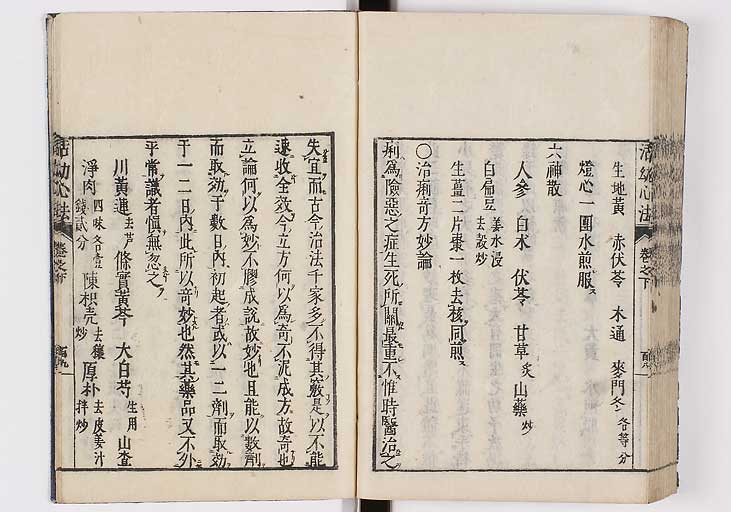 活幼心法 卷之下
生地黄 赤伏苓 木通 麥門冬 各等分
燈心一團水煎服
六神散
人參 白木 伏苓 甘草 炙 山藥 炒
白扁豆 姜水浸去殼炒
生薑二片棗一枚去核同煎
〇治痢奇方妙論
痢爲險惡之症生死所關最重不惟時醫治之
失宜而古今治法千家多不得其竅是以不能
速收全效今立方何以爲奇不泥成方故奇也
立論何以爲妙不膠成說故妙也且能以數劑
而取効于數日內初起者或以一二劑而取効
于一二日內此所以奇妙也然其藥品又不外
乎常識者慎無忽之
川黄連 去芦 條實黄芩 大白芍 生用 山查
淨肉 四味各壹錢貳分 陳枳壳 去穰炒 厚朴 去皮姜汁拌炒
活幼心法 卷之下